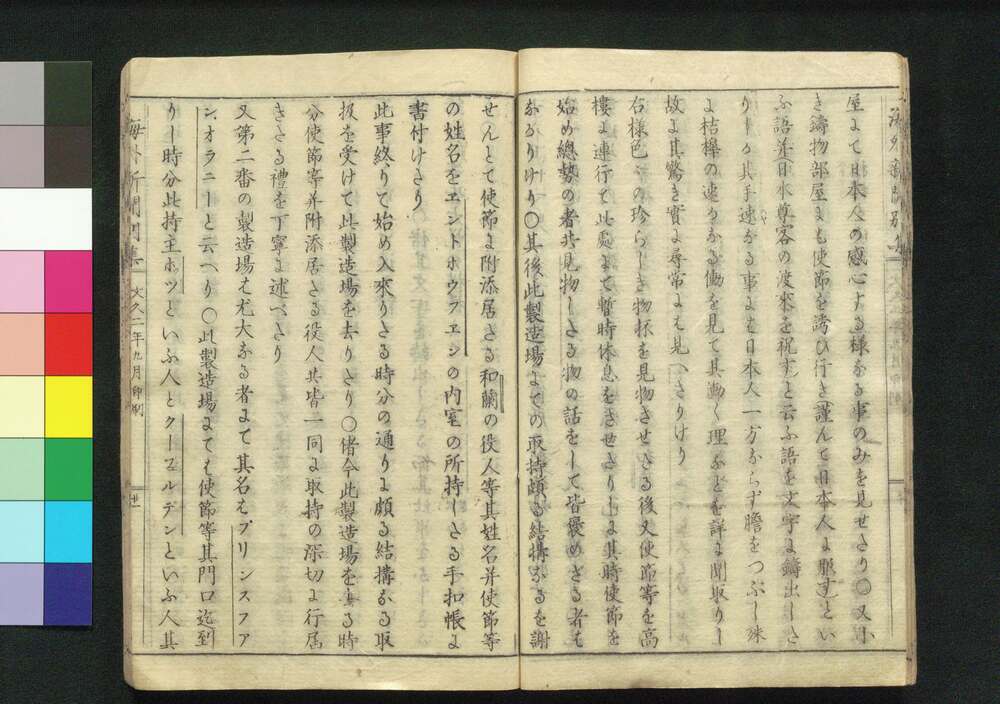 海外新聞別集
屋よて日本人の感心する様なる事のみを見せたり〇又小
き鑄物部屋よも使節を誘ひ行き謹んて日本人よ服すとい
ふ語并日本尊客の渡來を祝すと云ふ語を文字よ鑄出しさ
りしか其手速かる事よも日本人一方ならず膽をつぶし殊
よ桔槹の速なる働を見て其働く理などを詳よ聞取りし
故よ其驚き實よ尋常よも見へさりけり
右様色々の珍らしき物抔を見物させさる後又使節等を高
樓よ連行て此処よて暫時休息をさせさりしよ其時使節を
始め總勢の者共見物しさる物の話をして皆褒めざる者も
なかりけり〇其後此製造場よての取持頗る結構なるを謝
せんとて使節よ附添居さる和蘭の役人等其姓名并使節等
の姓名をエントホウフエンの内室の所持しさる手扣帳よ
書付けさり
此事終りて始め入來りさる時分の通りよ頗る結構なる取
扱を受けて此製造場を去りさり〇偖今此製造場を去る時
分使節等并附添居さる役人共皆一同よ取持の深切よ行届
きさる禮を丁寧よ述べさり
又第二番の製造場も尤大なる者よて其名もプリンスファ
ンオラニーと云へり〇此製造場よても使節等其門口迄到
りし時分此持主ホッツといふ人とクースルデンといふ人其
海外新聞別集
文久二年九月印刷
廿